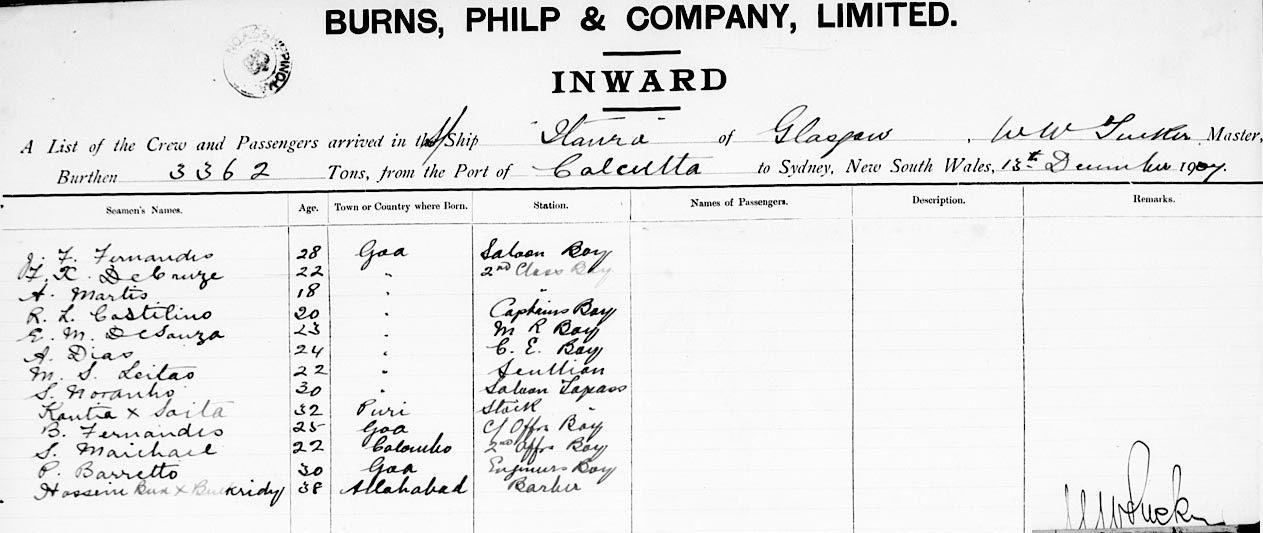 BURNS, PHILP & COMPANY, LIMITED.
INWARD
A List of the Crew and Passengers arrived in the S/Ship "Itaura" of Glasgow, W W Tucker Master,
Burthen 3362 Tons, from the Port of Calcutta to Sydney, New South Wales, 13th December 1907.
Seamen's Names. Age. Town or Country where Born. Station. Names of Passengers. Description. Remarks.
J. F. Fernandis 28 Goa Saloon Boy
F. X. DeCruze 22 " 2nd Class Boy
A. Martis 18 " "
R. L. Castilino 20 " Captains Boy
E. M. DeSouza 23 " M R Boy
A. Dias 24 " C. E. Boy
M. S. Leitao 22 " Scullion
S. Noranho 30 " Saloon Topass
Kantia x Saita 32 Puri Stock "
B. Fernandis 25 Goa C/ Offrs Boy
S. Maichael 22 Colombo 2nd Offrs Boy
P. Barretto 30 Goa Engineers Boy
Hossein Bux x Buckridy 38 Allahabad Barber
W W Tucker